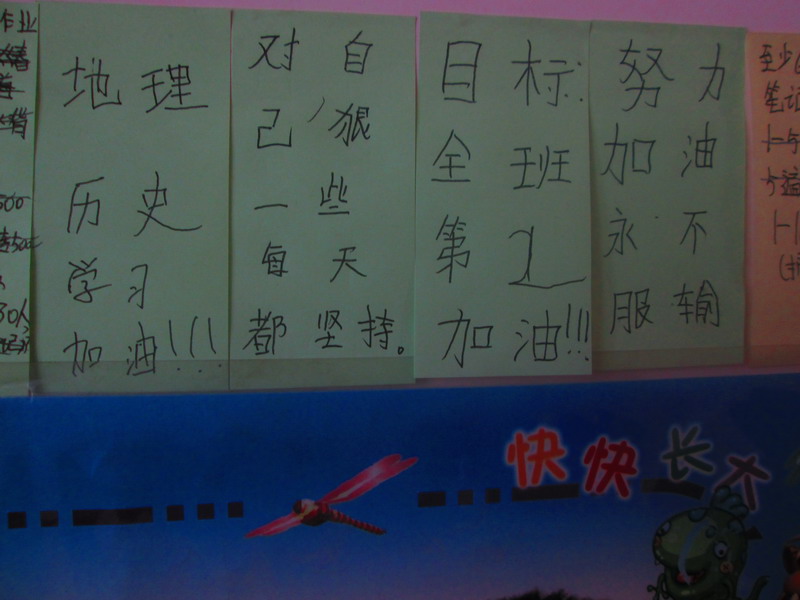 作业
500
30人
地理
历史
学习
加油!!!
对自
己,狠
一些
每天
都坚持。
目标:
全班
第
加油!!!
努力
加油
永不
服输
至少
笔记
快快长大